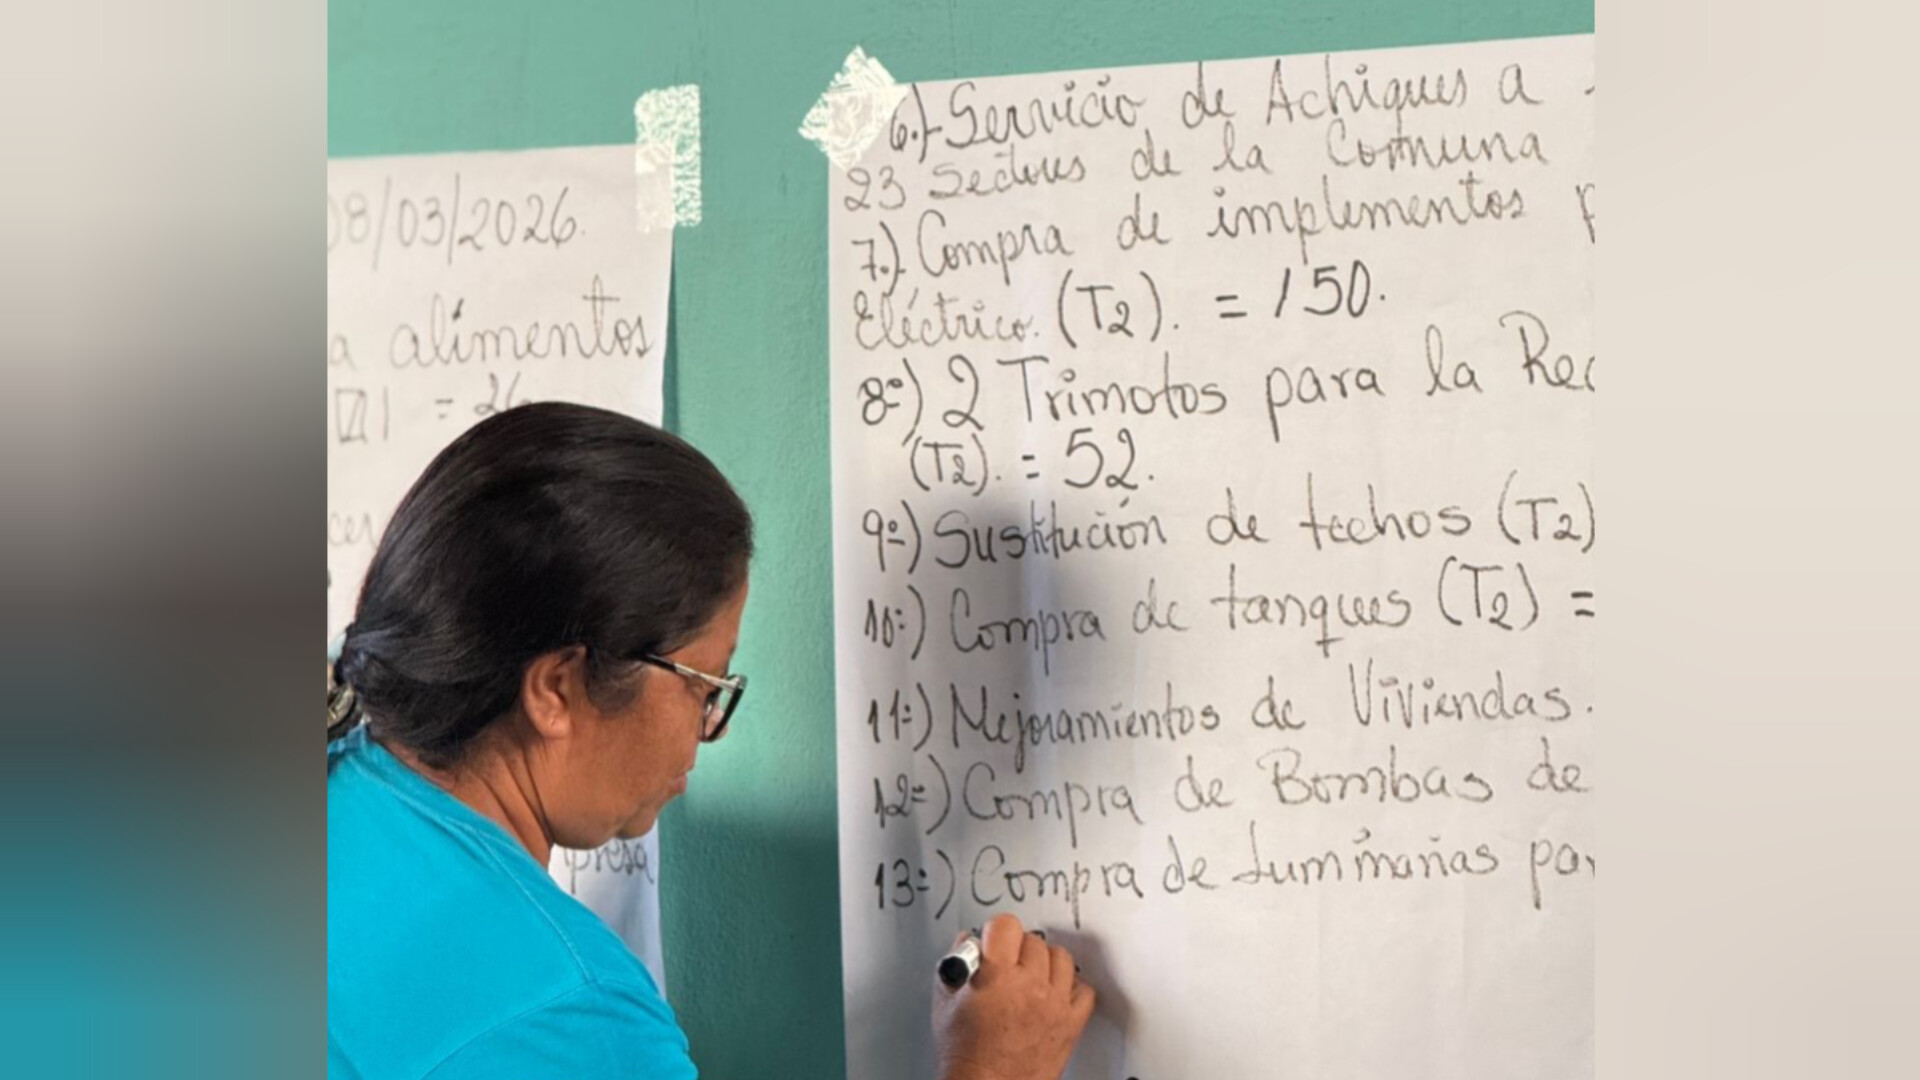 08/03/2026.
a alimentos
= 26
cer
presa
6.)-Servicio de Achiques a
23 Sectores de la Comuna
7.)-Compra de implementos p
Eléctrico. (T2). = 150.
8º) 2 Trimotos para la Rec
(T2). = 52.
9º) Sustitución de techos (T2)
10º) Compra de tanques (T2) =
11º) Mejoramientos de Viviendas.
12º) Compra de Bombas de
13º) Compra de Luminarias par